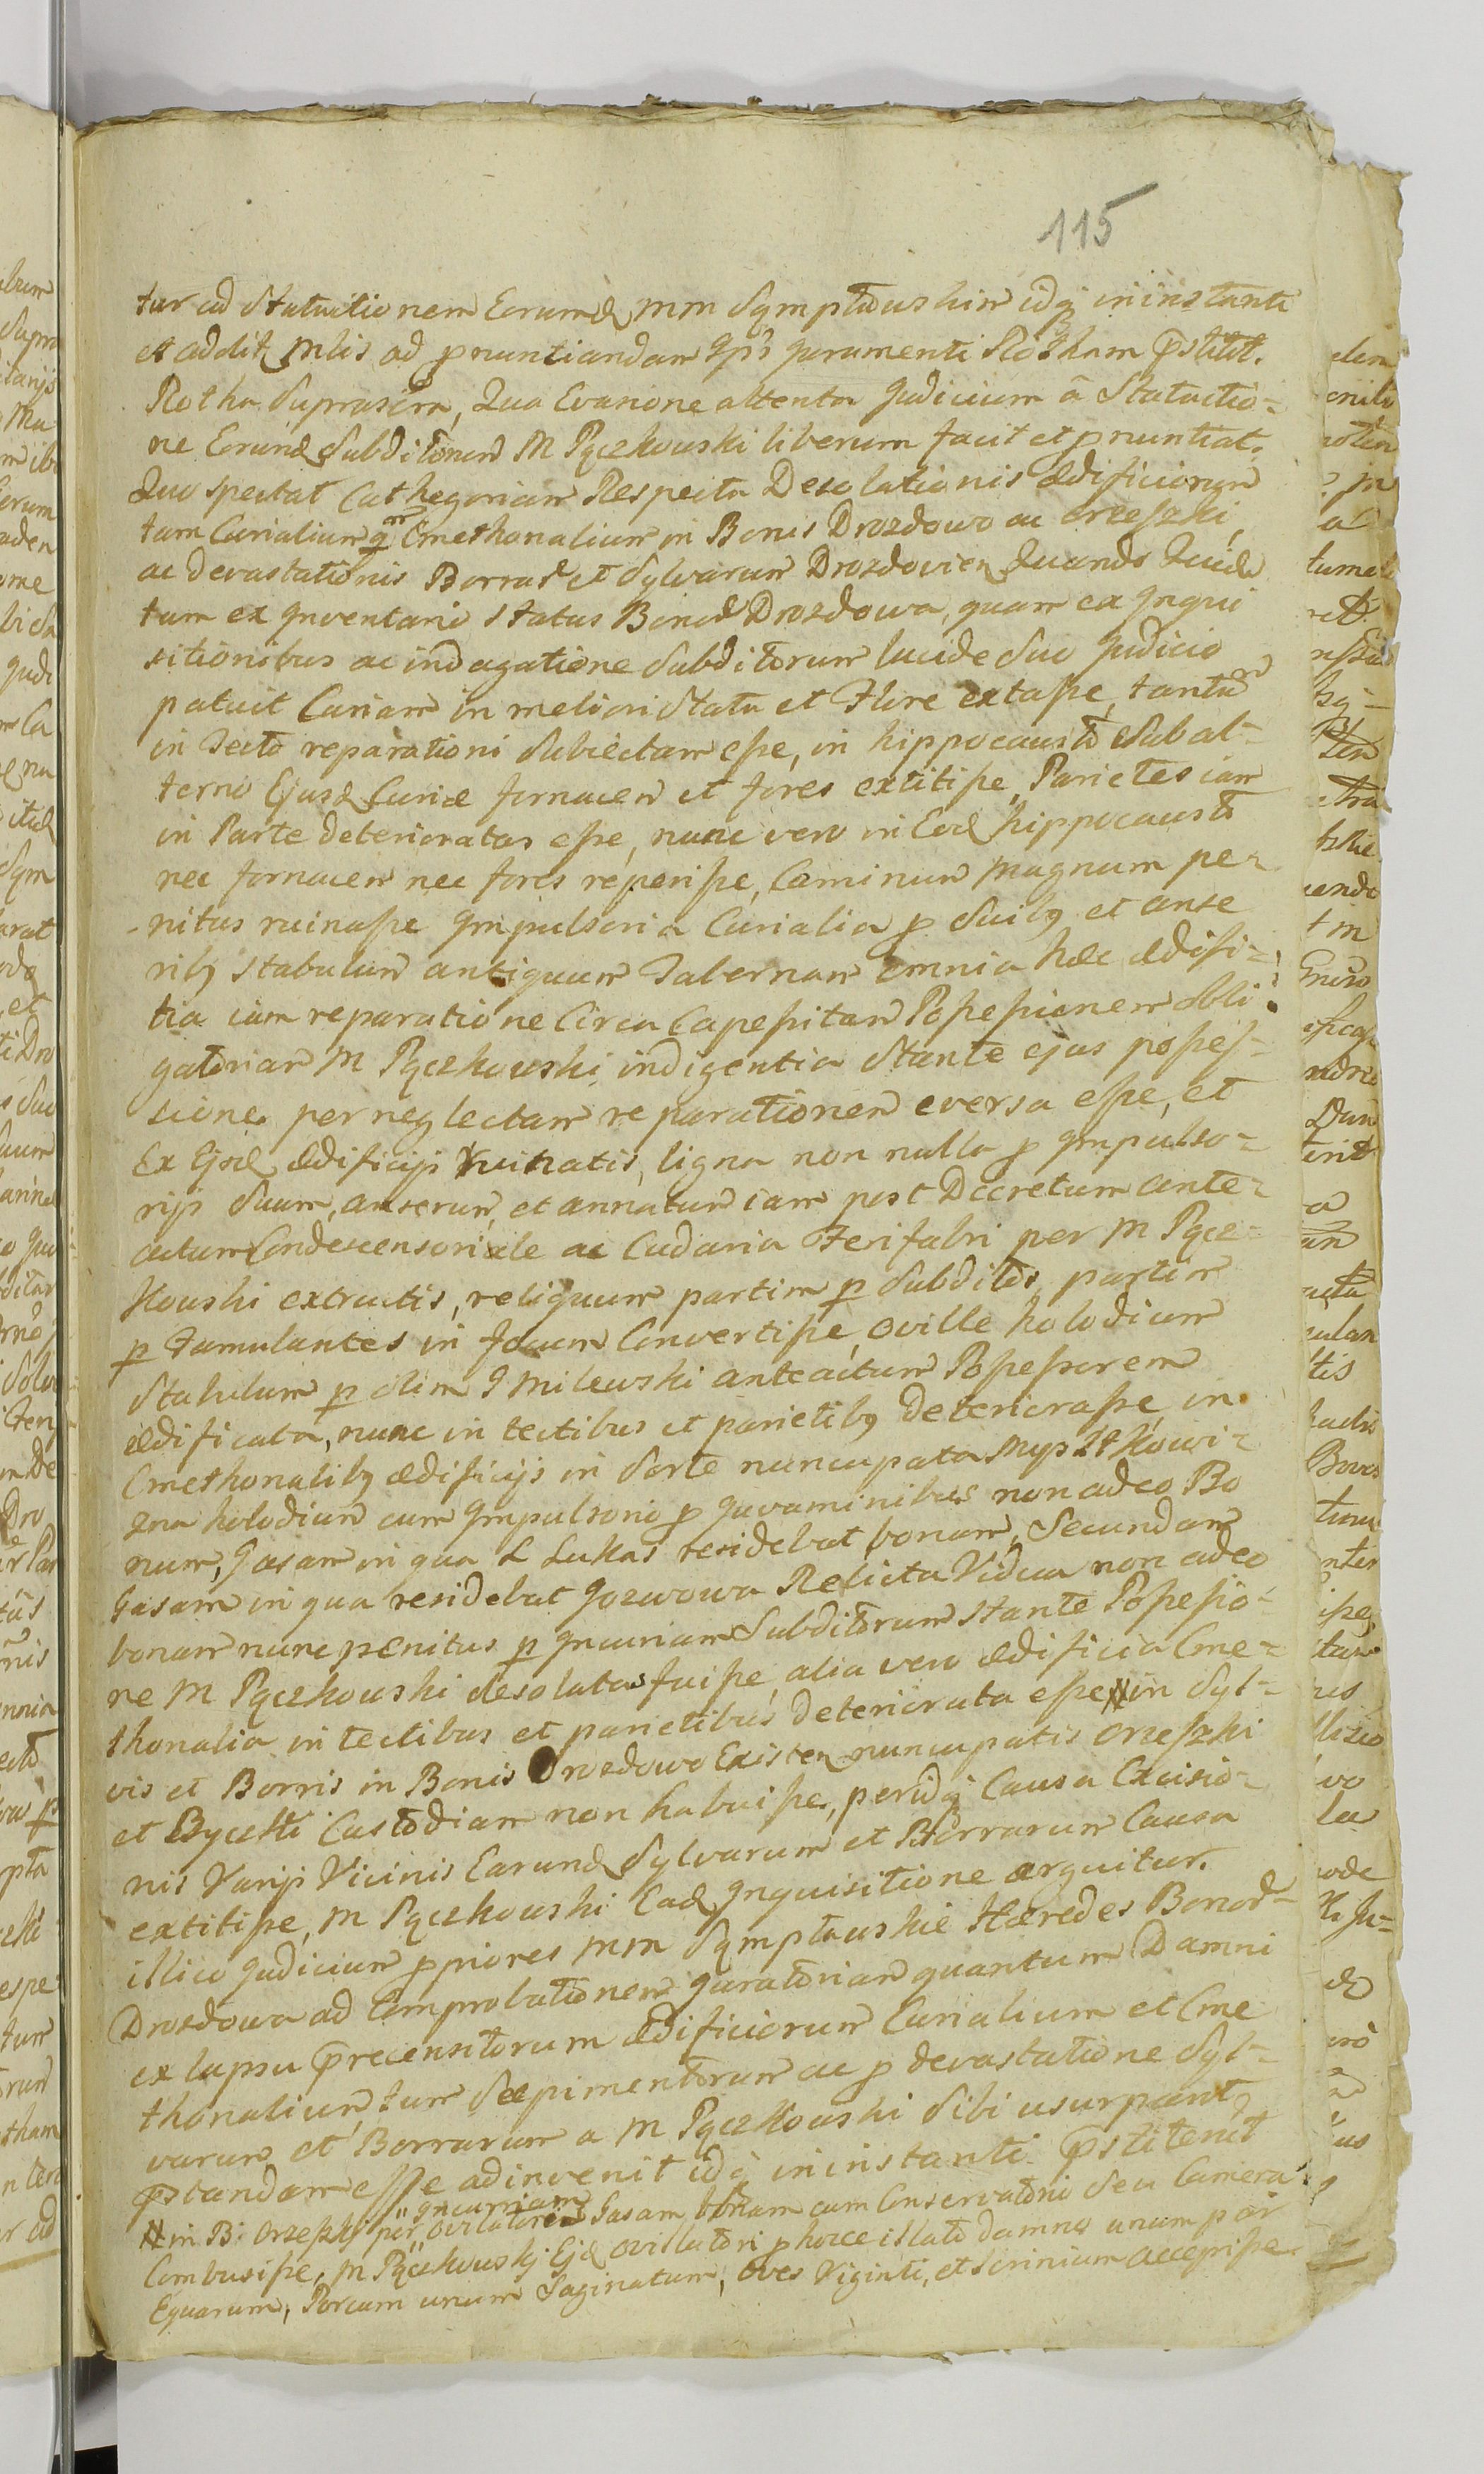 115
tur ad Statuitionem Eorumd MM Symptowskim idq in instanti
et addit Mlis ad pnuntiandam Jpis Juramenti Rotham pstitit.
Rotha Suprascra, Qua Evasione attenta Judicium â Statuitio=
ne Eorund Subditorum M Pączkowski liberum facit et pnuntiat.
Quo spectat Cathegoriam Respectu Desolationis ædificiorum
tam Curialium qm Cmethonalium in Bonis Drozdowo ac Orzeszki,
ac devastationis Borrar et Sylvarum Drozdovien Quando Quid
tum ex Jnventario status Bonor Drozdowa, quam ex Jnqui
sitionibus ac indagatione Subditorum lucide Suo Judicio
patuit Curiam in meliori Statu et Flore extasse, tantum
in Tecto reparationi Subiectam esse, in hippocausto Subal=
terno Ejusd Curiæ fornacem et fores extitisse, Parietes iam
in Parte deterioratas esse, nunc vero in Eod hippocausto
nec fornacem nec fores reperisse, Caminum magnum pe=
nitus ruinasse Jmpulsoria Curialia p Suibq et anse
ribq Stabulum antiquum Tabernam Omnia hæc ædifi=
tia iam reparatione Circa Capessitam Possessionem obli=
gatoriam M Pączkowski indigentia Stante ejus posses=
sione per neglectam reparationem eversa esse, et
Ex Ejsd ædificijs ruinatis, ligna non nulla p Jmpulso=
rijs Suum, anserum, et annatum iam post Decretum ante=
actum Condescensoriale ac Cudaria Ferifabri per M Pącz=
kowski extructis, reliquum partim p Subditos, partim
p Famulantes in focum Convertisse, Oville holodium
Stabulum p olim G Milewski anteactum Possessorem
ædificata, nunc in tectibus et parietibq deteriorasse in
Cmethonalibq ædificijs in Sorte nuncupata Myszkowi=
zna holodium cum Jmpulsorio p Juvaminibus non adeo Bo
num, Casam in qua L Lukas residebat bonam, Secundam
Casam in qua residebat Jozwowa Relicta Vidua non adeo
bonam nunc penitus p Jncuriam Subditorum Stante Possessio=
ne M Pączkowski desolatas fuisse, alia vero ædificia Cme=
thonalia in tectibus et parietibus deteriorata esse # in Syl=
vis et Borris in Bonis Drozdowo Existen nuncupatis Orzeszki
et Byczki Custodiam non habuisse, peridq Causa Excisio=
nis Varijs Vicinis Earund Sylvarum et Borrarum Causa
extitisse, M Pączkowski Ead Jnquisitione arguitur.
illico Judicium ppriores MM Symptowskie Hæredes Bonor=
Drozdowa ad Comprobationem Juratoriam quantum Damni
ex lapsu precensitorum ædificiorum Curialium et Cme
thonalium, tum Sæpimentorum ac p devastatione Syl=
varum et Borrarum a M Pączkowski Sibi usurpant,
pstandam esse adinvenit idq in instanti pstitent
# in B: Orzeszki per Jncuriam Ovilatoris Casam bonam cum Conservatorio Seu Camera
Combusisse, M Pączkowski Ejd Ovillatori p hocce illato damno unum par
Equarum, Porcum unum Saginatum, Oves Viginti, et Scrinium accepisse